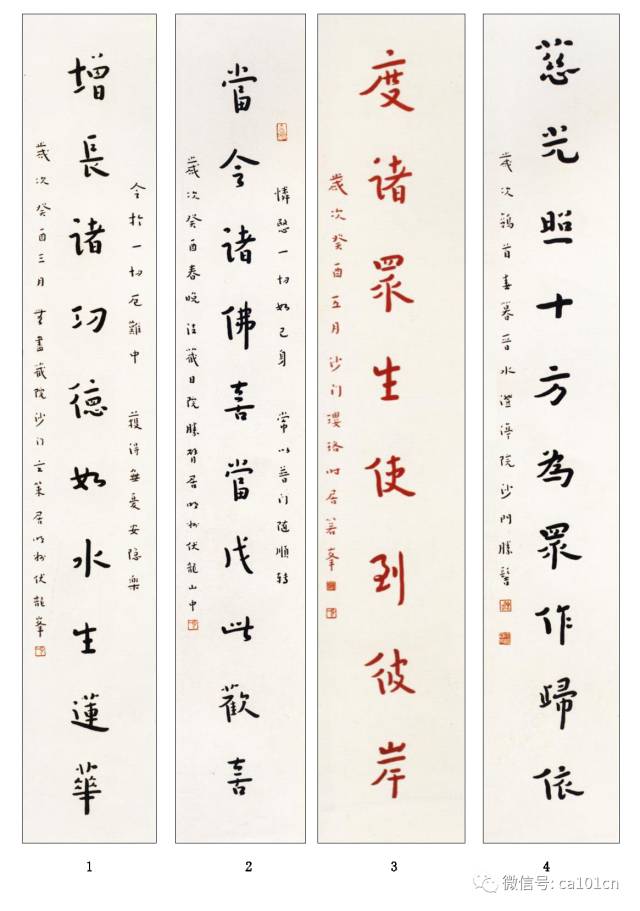 今於一切厄難中 獲得無憂安隱樂
增長諸功德如水生蓮華
歲次癸酉三月 無盡藏院沙门玄策居明州伏龍峯
憐愍一切如己身 常以普门随順轉
當令諸佛喜當成此歡喜
歲次癸酉春晚 藏日院勝髻居明州伏龍山中
度诸眾生使到彼岸
歲次癸酉五月沙门瓔珞时居箬峯
慈光照十方為眾作歸依
歲次鶉首春暮晉水澄渟院沙門勝髻
1
2
3
4
微信号: ca101cn